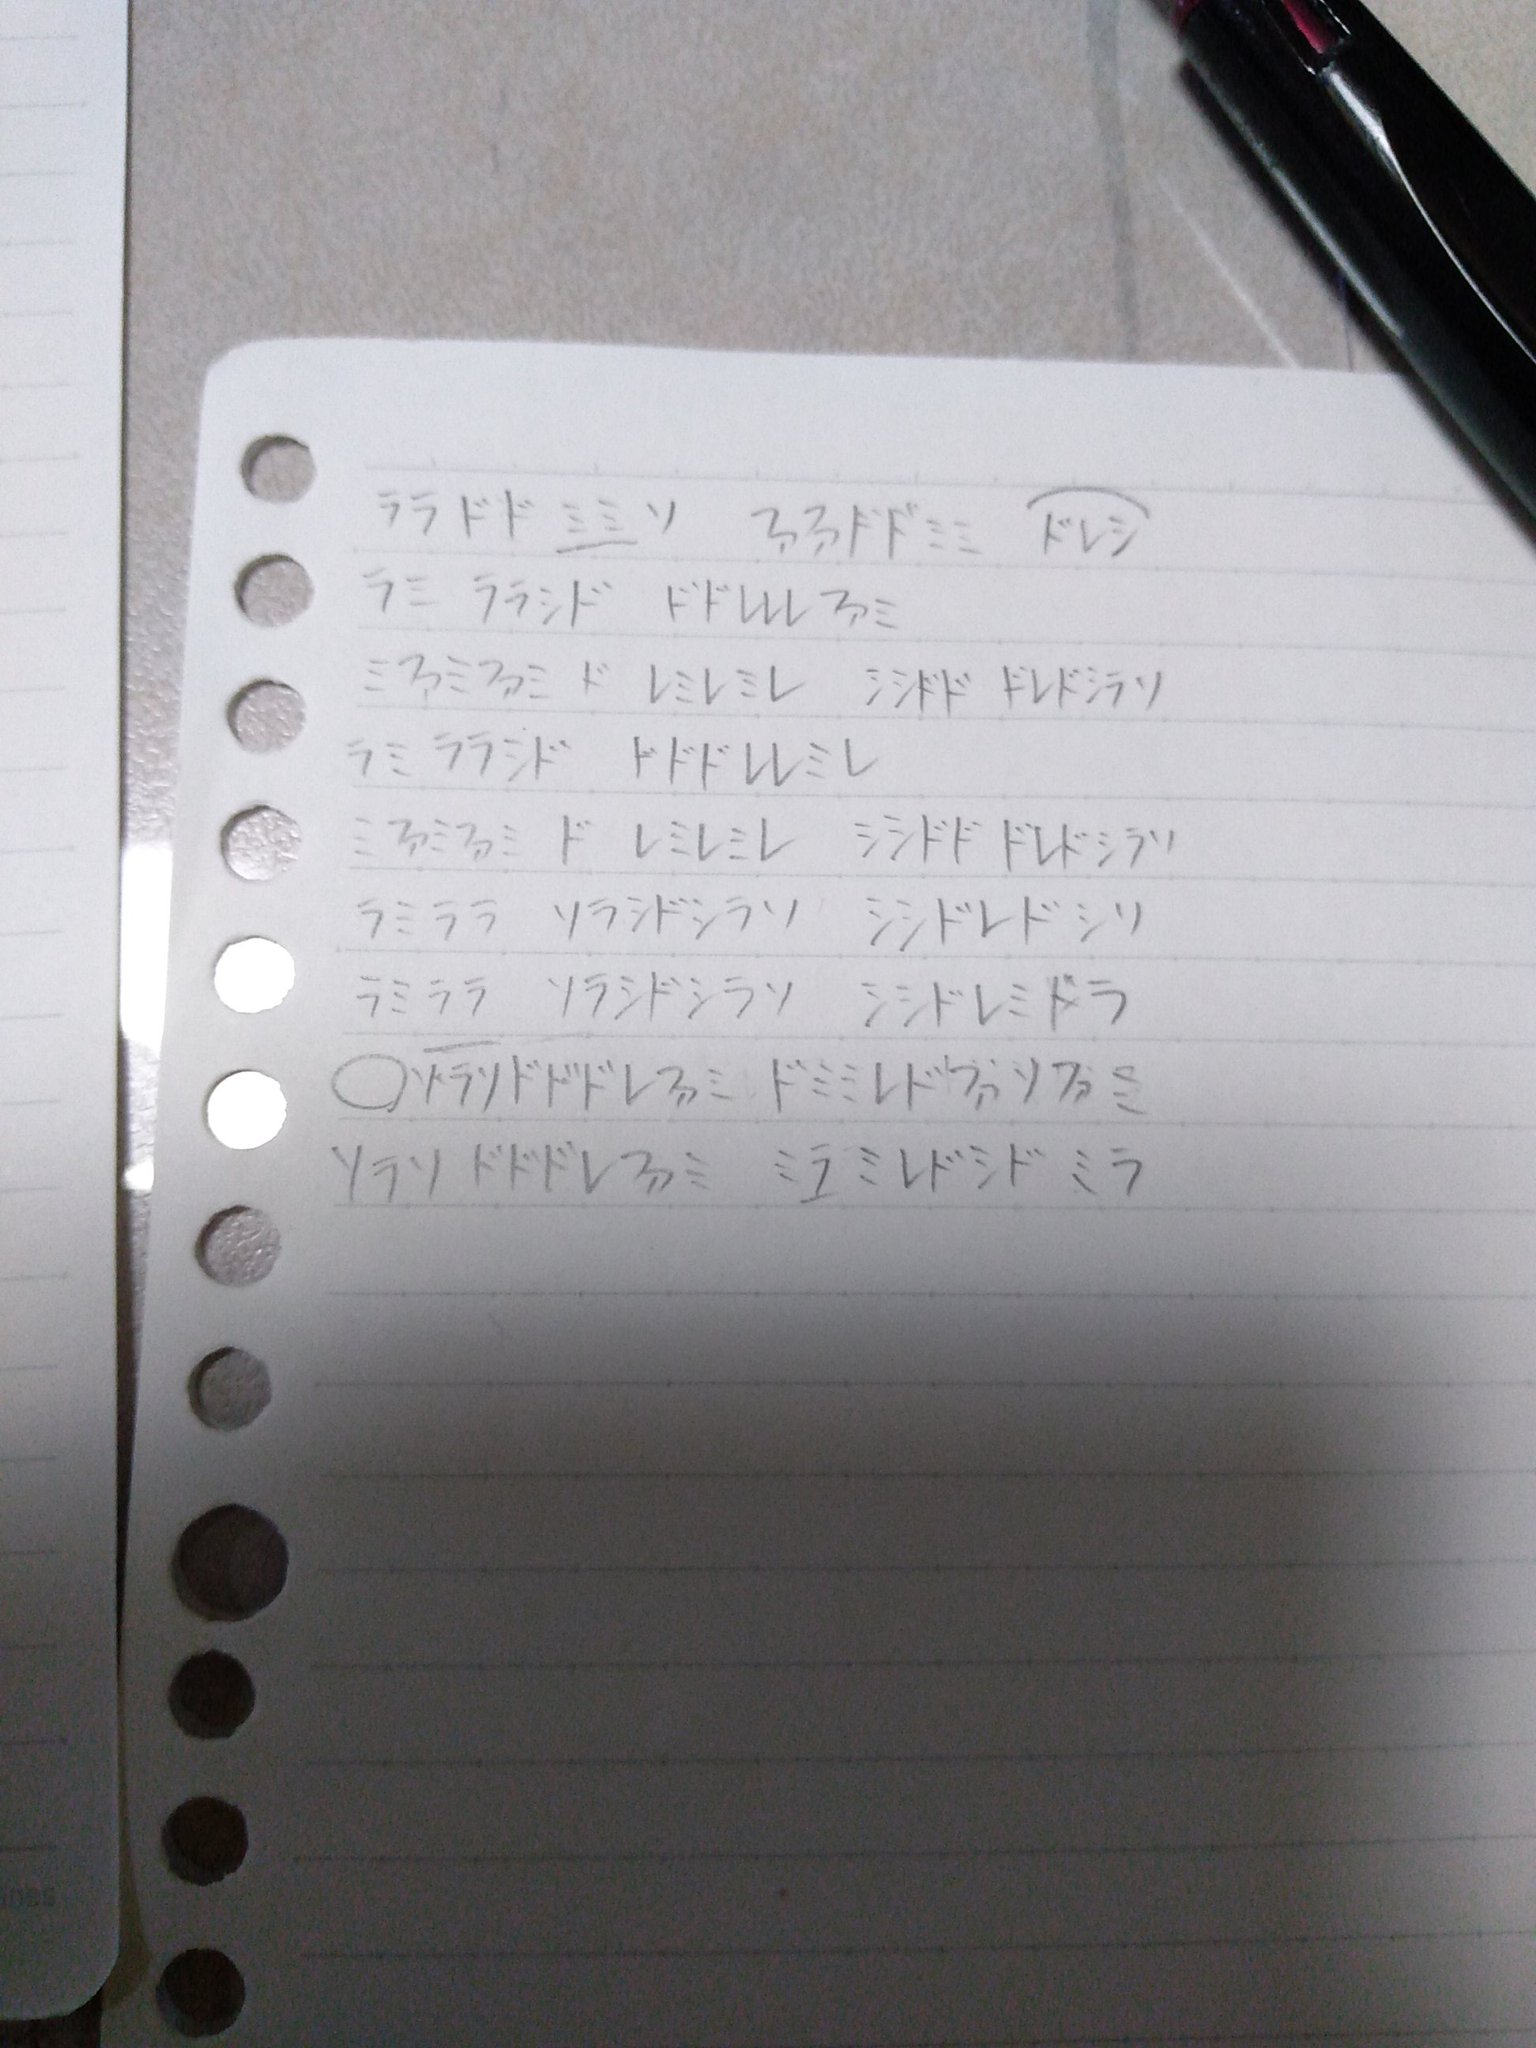 ララドド ミミソ ファファドドミミ ドレシ
ラミ ララシド ドドレレレファミ
ミファミファミ ド レミレミレ シシドド ドレドシラソ
ラミ ララシド ドドドレレミレ
ミファミファミ ド レミレミレ シシドド ドレドシラソ
ラミララ ソラシドシラソ シシドレドシソ
ラミララ ソラシドシラソ シシドレミドラ
ソラソドドドレファミ ドミミレドファソファミ
ソラソ ドドドレファミ ミラミレドシド ミラ